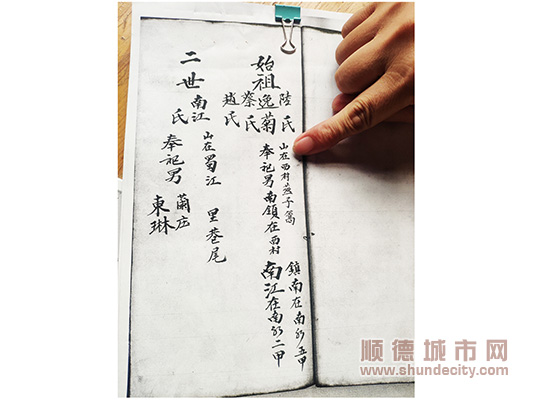 始祖逸菊
陸氏
蔡氏
趙氏
山在西村燕子窩
奉祀男南鎮在西村
鎮南在南水五甲
南江在南水二甲
二世南江
氏
山在蜀江里巷尾
奉祀男
蘭庄
東琳
顺德城市网
www.shundecity.com